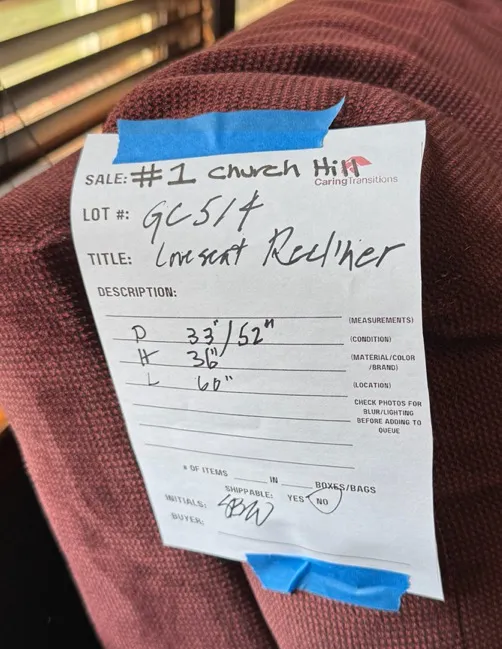 SALE: #1 Church Hill
CaringTransitions
LOT #: GC514
TITLE: Loveseat Recliner
DESCRIPTION:
(MEASUREMENTS)
D 33"/52" (CONDITION)
H 36" (MATERIAL/COLOR
/BRAND)
L 60" (LOCATION)
CHECK PHOTOS FOR
BLUR/LIGHTING
BEFORE ADDING TO
QUEUE
# OF ITEMS IN BOXES/BAGS
SHIPPABLE: YES NO
INITIALS:
BUYER: